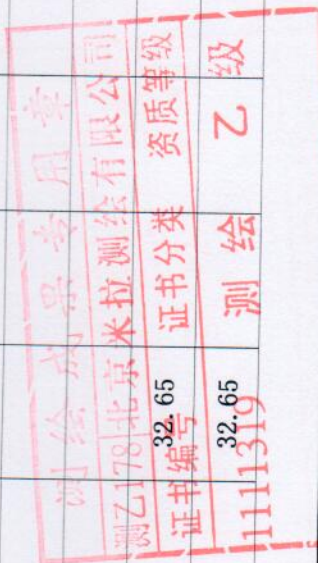 测绘成果专用章
测乙178 北京米拉测绘有限公司
证书编号 证书分类 资质等级
1111319 测绘 乙级
32.65
32.65